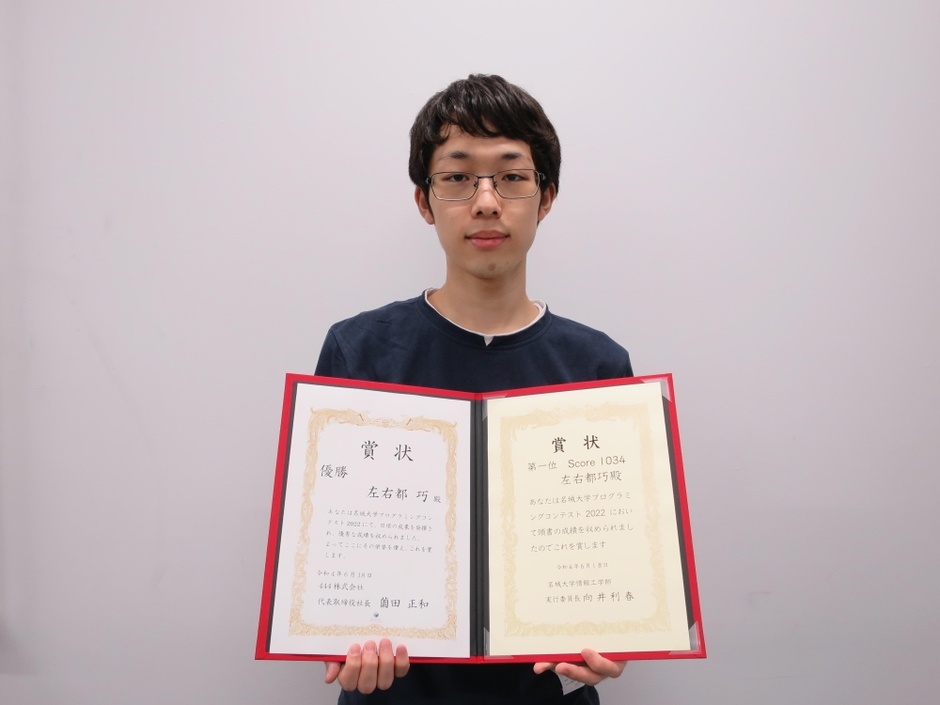 賞状
優勝
左右都 巧 殿
あなたは名城大学プログラミングコン
テスト2022にて、日頃の成果を発揮さ
れ、優秀な成績を収められました。
よってここにその栄誉を讃え、これを賞
します。
令和4年6月18日
444株式会社
代表取締役社長 薗田 正和
賞状
第一位 Score 1034
左右都巧殿
あなたは名城大学プログラミ
ングコンテスト2022 におい
て頭書の成績を収められまし
たのでこれを賞します
令和4年6月18日
名城大学情報工学部
実行委員長 向井利春